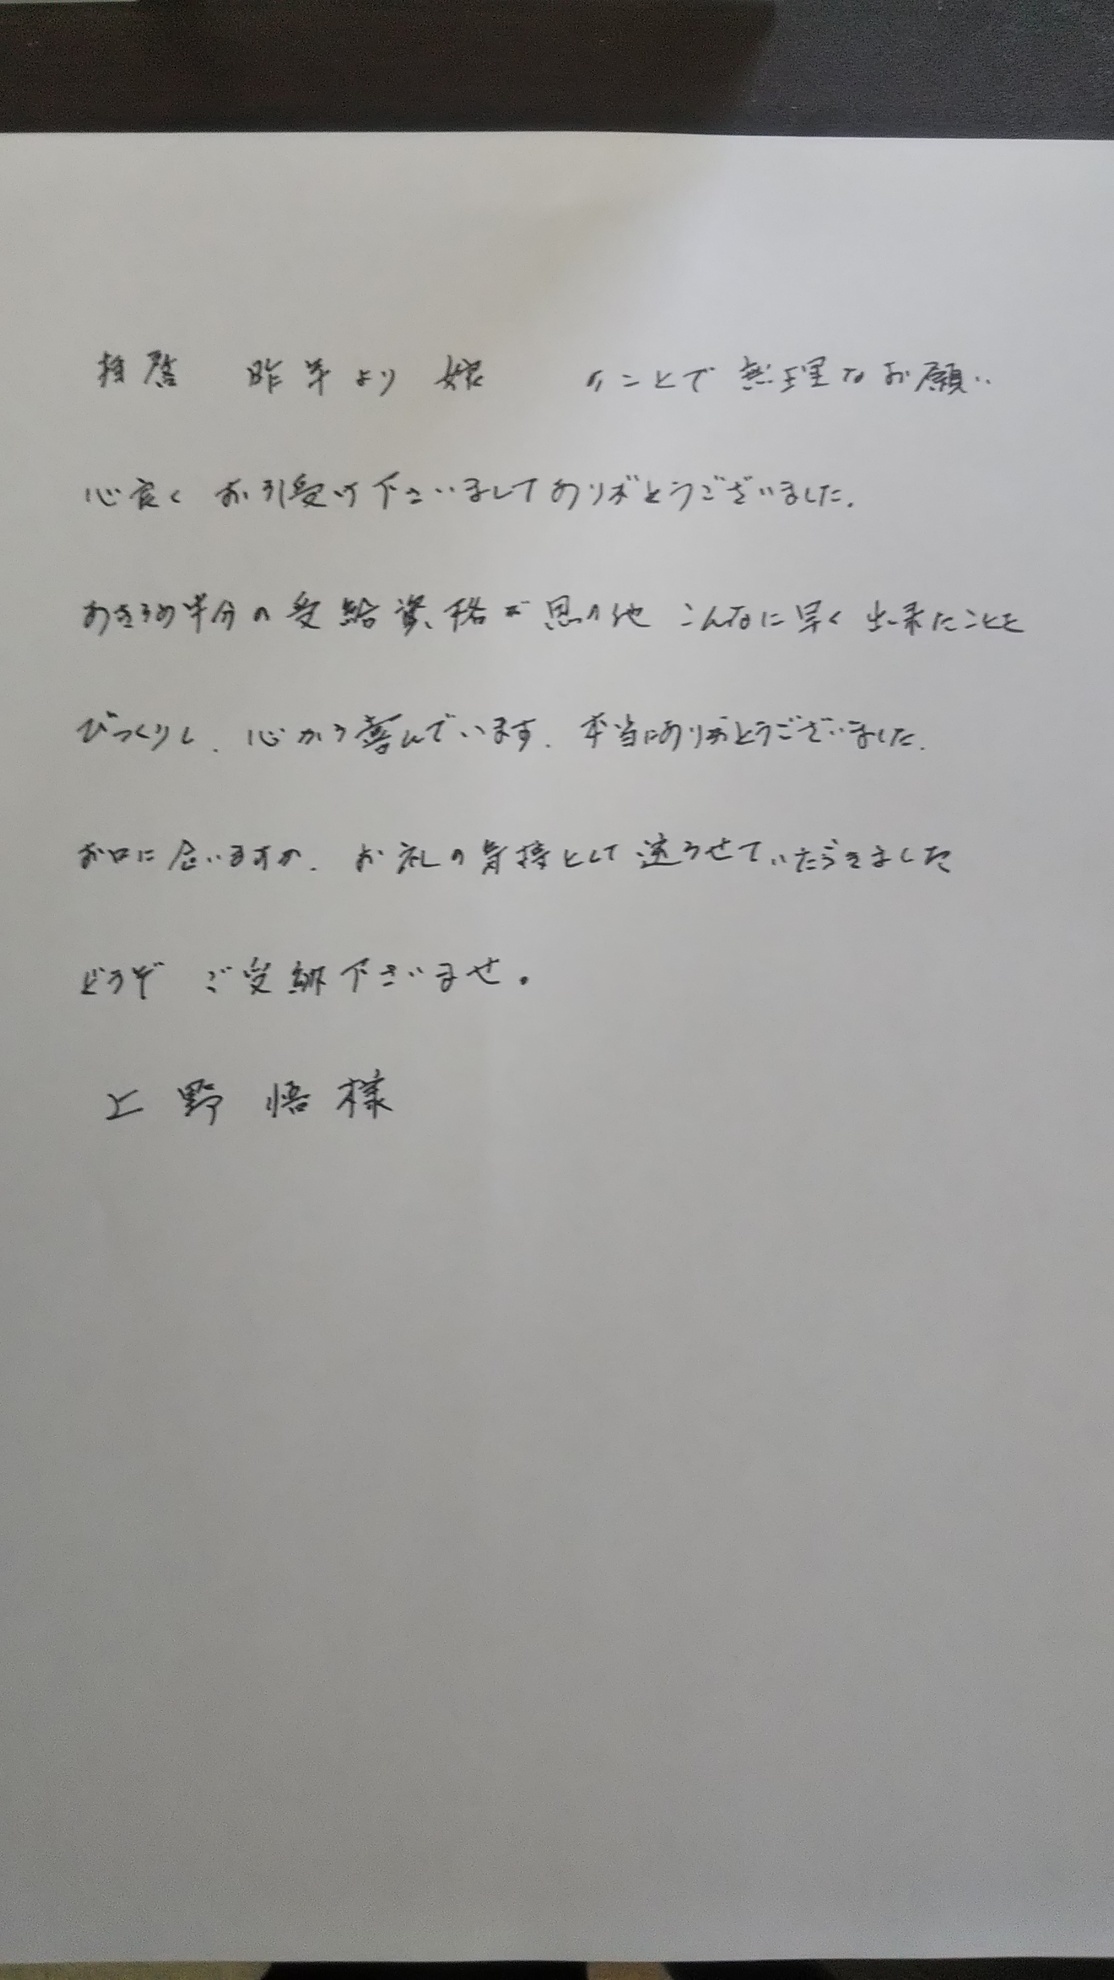 拝啓 昨年より娘 のことで無理なお願い
心良くお引受け下さいましてありがとうございました.
あきらめ半分の受給資格が思の他 こんなに早く出来たことを
びっくりし、心から喜んでいます. 本当にありがとうございました.
お口に合いますか、お礼の気持として送らせていただきました
どうぞ ご受納下さいませ。
上野悟様